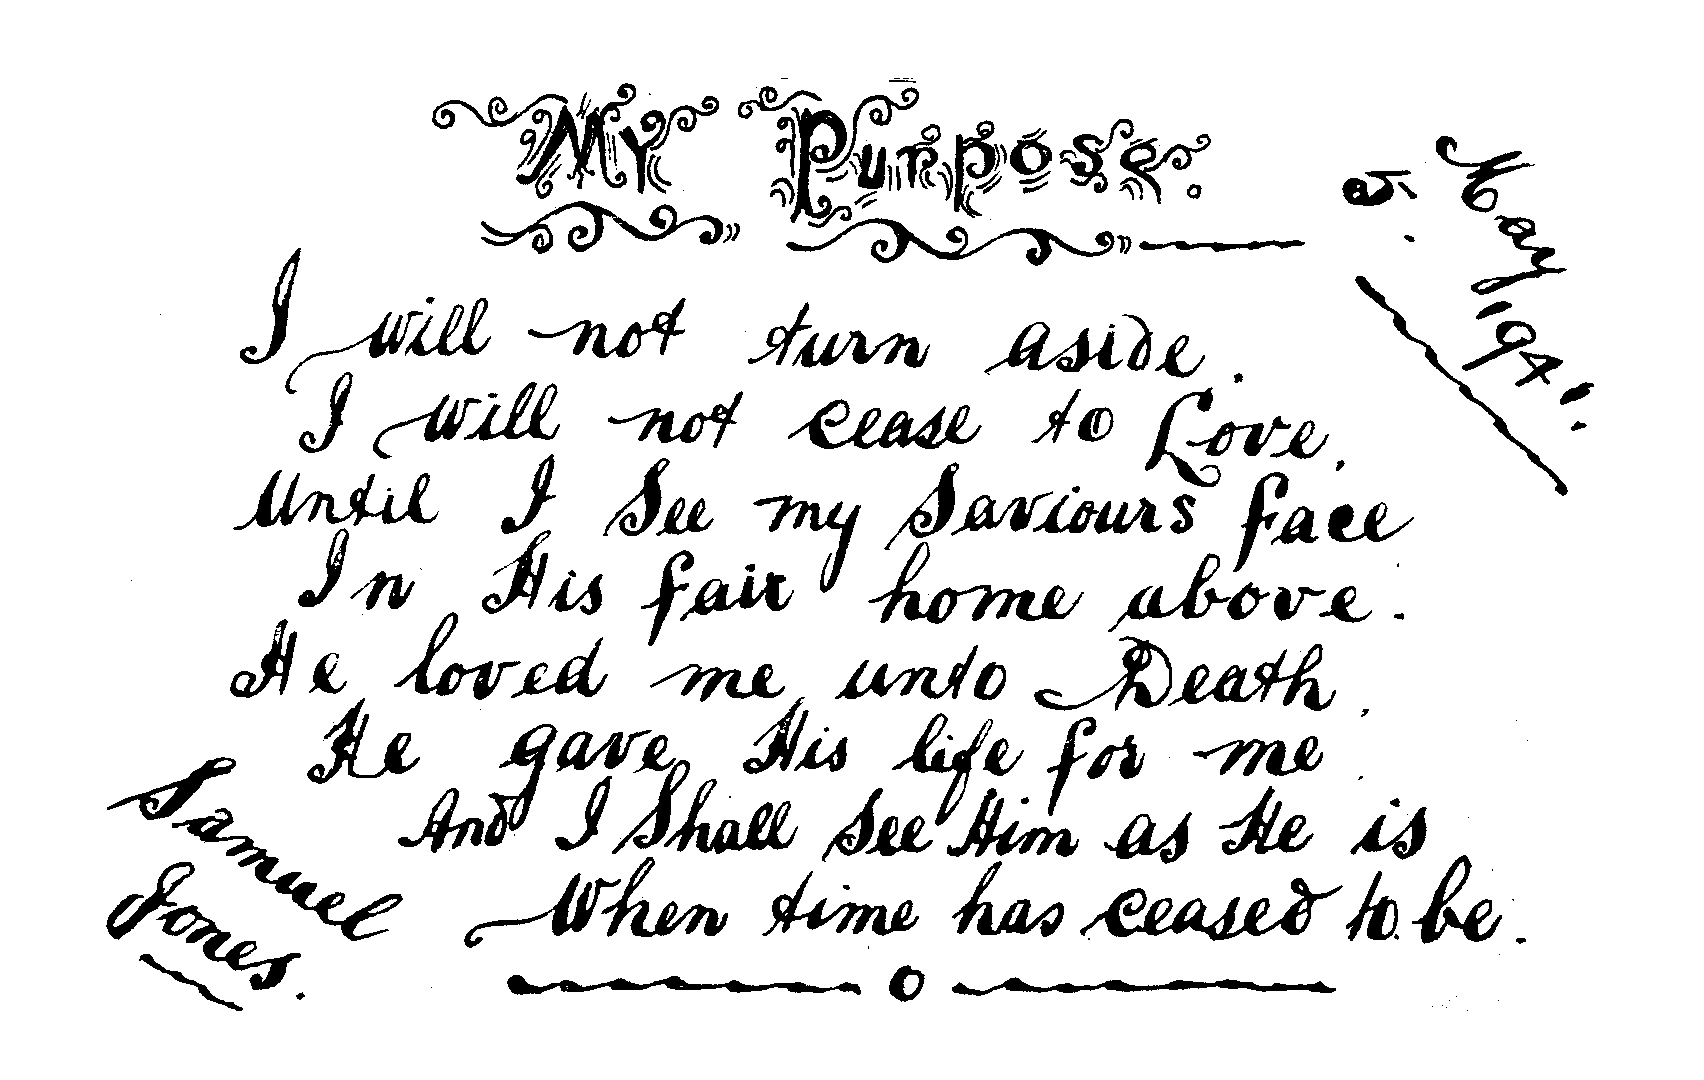 My Purpose.
5. May '94.
I will not turn aside.
I will not cease to Love.
Until I See my Saviours face
In His fair home above.
He loved me unto Death.
He gave His life for me
And I Shall See Him as He is
When time has ceased to be.
Samuel
Jones.